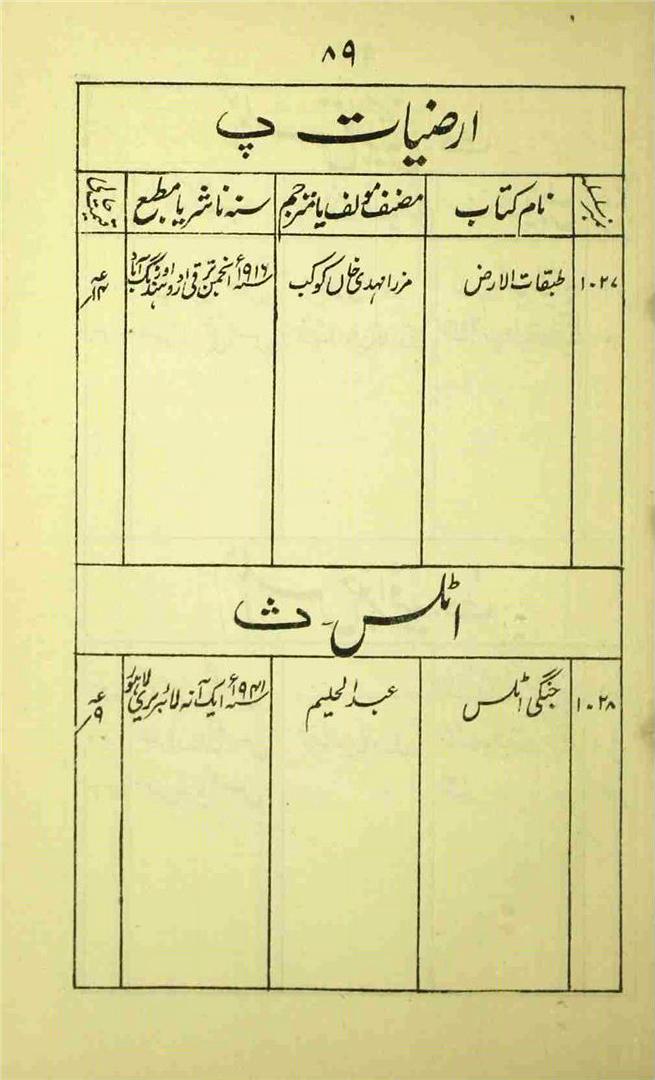 ۸۹
ارضیات پ
نمبر سلسلہ نام کتاب مصنف مولف یا مترجم سنہ ناشر یا مطبع قیمت حالی
۱۰۲۷ طبقات الارض مرزا مہدی خاں کوکب ۱۹۱۶ء انجمن ترقی اردو ہند اورنگ آباد
اٹلس ۔ ث
۱۰۲۸ جنگی اٹلس عبدالحلیم ۱۹۴۱ء ایک آنہ لائبریری لاہور